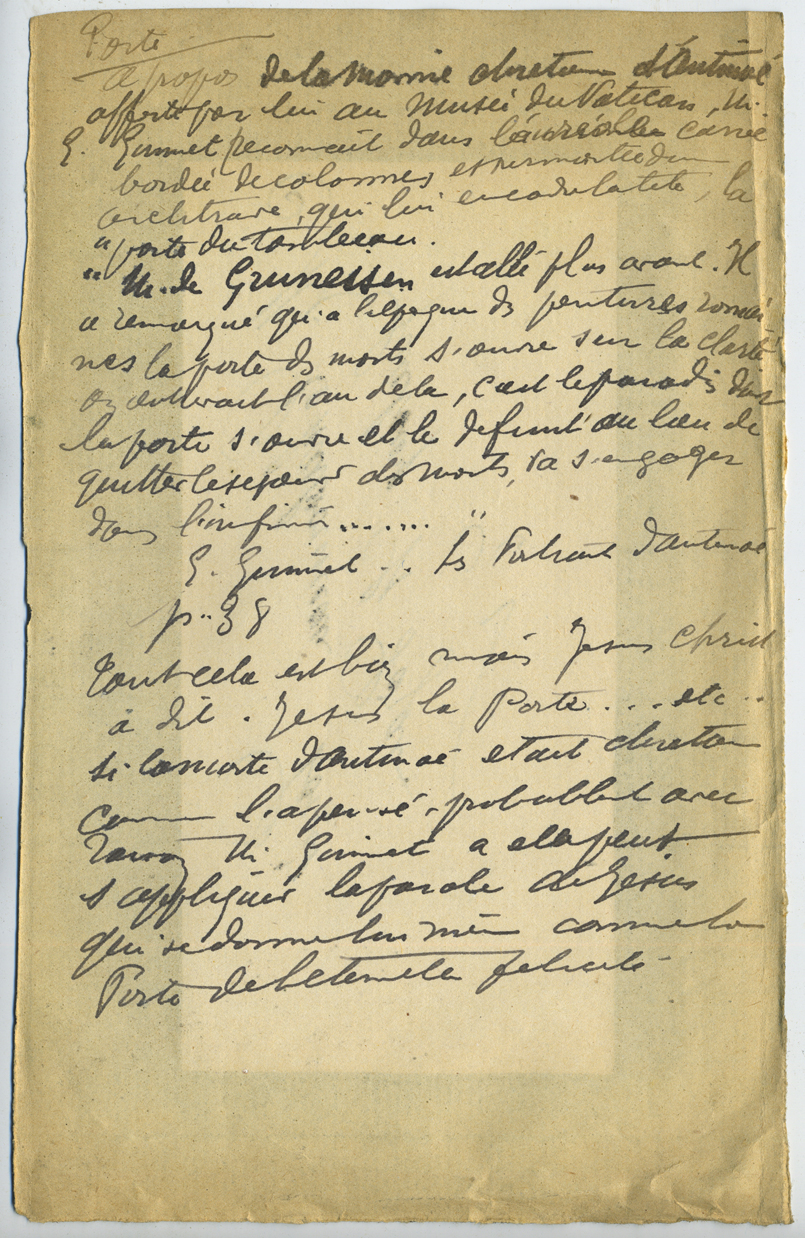 Porte
à propos de la momie chretienne d'Antinoé
offerte par lui au Musée du Vatican, M.
E. Guimet reconnait dans l'auréole carrée
bordée de colonnes et surmontée d'un
architrave, qui lui encadre la tête, la
"porte du tombeau.
"M. de Grüneisen est allé plus avant. Il
a remarqué qu'à l'epoque des peintures romai
nes la porte des morts s'ouvre sur la clarté
or l'au dela, c'est le paradis dont
la porte s'ouvre et le defunt au lieu de
quitter le sejour des morts, va s'engager
dans l'infini....... "
E. Guimet .. Les Portraits d'antinoé
p. 38
Tout cela est bien mais Jesus Christ
à dit . Je suis la Porte . . . etc ..
si la morte d'antinoé etait chretienne
comme l'a pensé probablement avec
raison M. Guimet a elle peut
s'appliquer la parole de Jesus
qui se donne lui même comme la
Porte de l'eternelle felicité